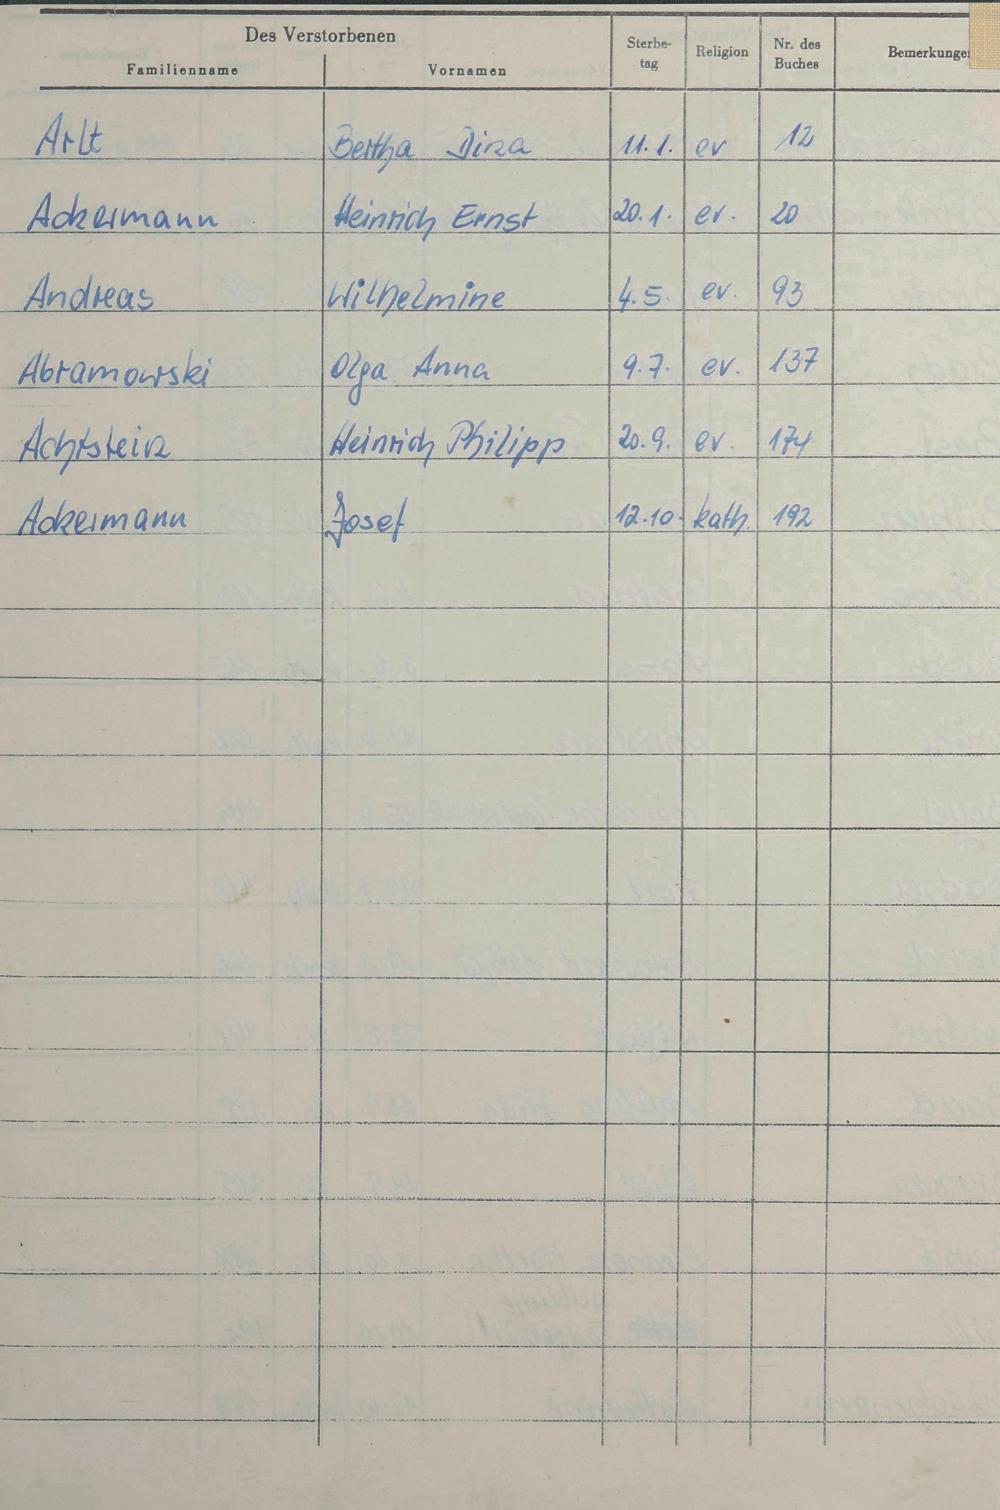 Des Verstorbenen
Familienname Vornamen Sterbe-tag Religion Nr. des Buches Bemerkungen
Arlt Bertha Dina 11.1. ev 12
Ackermann Heinrich Ernst 20.1. ev. 20
Andreas Wilhelmine 4.5. ev. 93
Abramowski Olga Anna 9.7. ev. 137
Achtstein Heinrich Philipp 20.9. ev. 174
Ackermann Josef 12.10. kath. 192